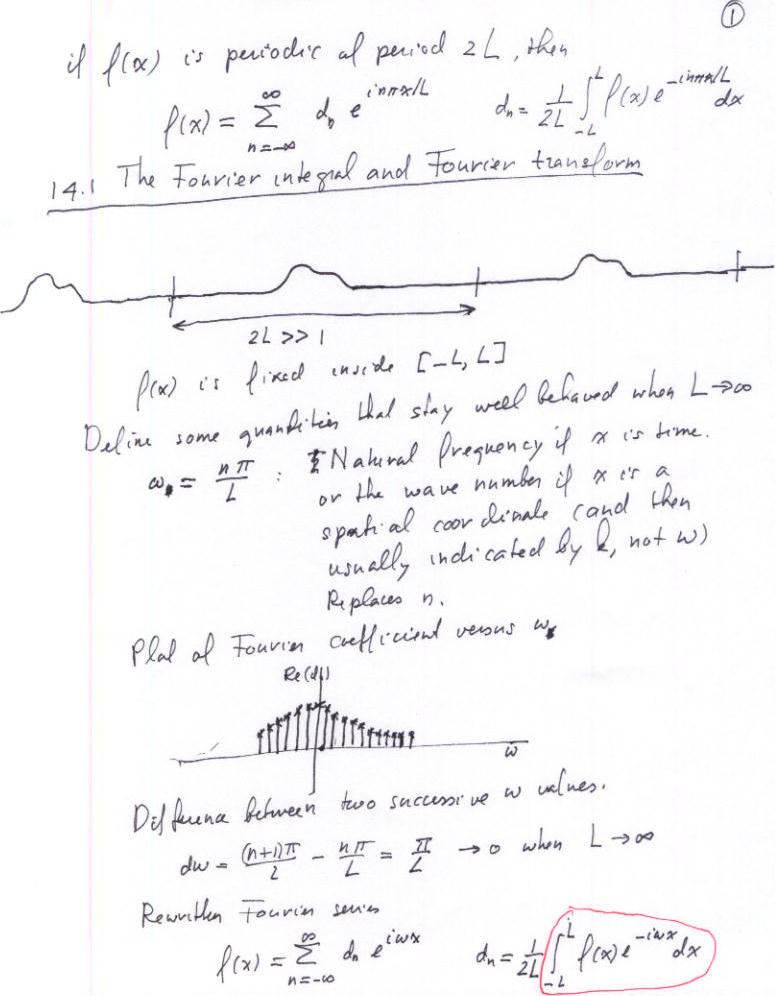 ①
if f(x) is periodic of period 2L, then
f(x) = ∑_{n=-∞}^{∞} d_n e^{inπx/L}    d_n = 1/2L ∫_{-L}^{L} f(x) e^{-inπx/L} dx
14.1 The Fourier integral and Fourier transform
2L >> 1
f(x) is fixed inside [-L, L]
Define some quantities that stay well behaved when L→∞
ω = nπ/L : Natural frequency if x is time.
or the wave number if x is a
spatial coordinate (and then
usually indicated by k, not ω)
Replaces n.
Plot of Fourier coefficient versus ω
Re(d_n)
ω
Difference between two successive ω values.
dω = (n+1)π/L - nπ/L = π/L → 0 when L → ∞
Rewritten Fourier series
f(x) = ∑_{n=-∞}^{∞} d_n e^{iωx}    d_n = 1/2L ∫_{-L}^{L} f(x) e^{-iωx} dx